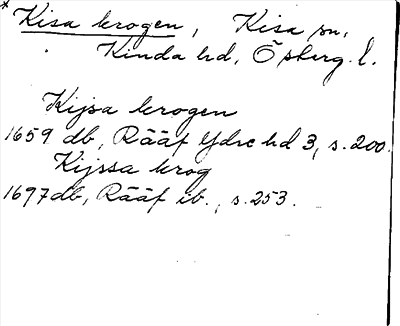 * Kisa krogen, Kisa sn,
Kinda hd, Östberg. l.
Kijsa krogen
1659 db, Rääf Ydre hd 3, s. 200.
Kijssa krog
1697 db, Rääf ib., s. 253.